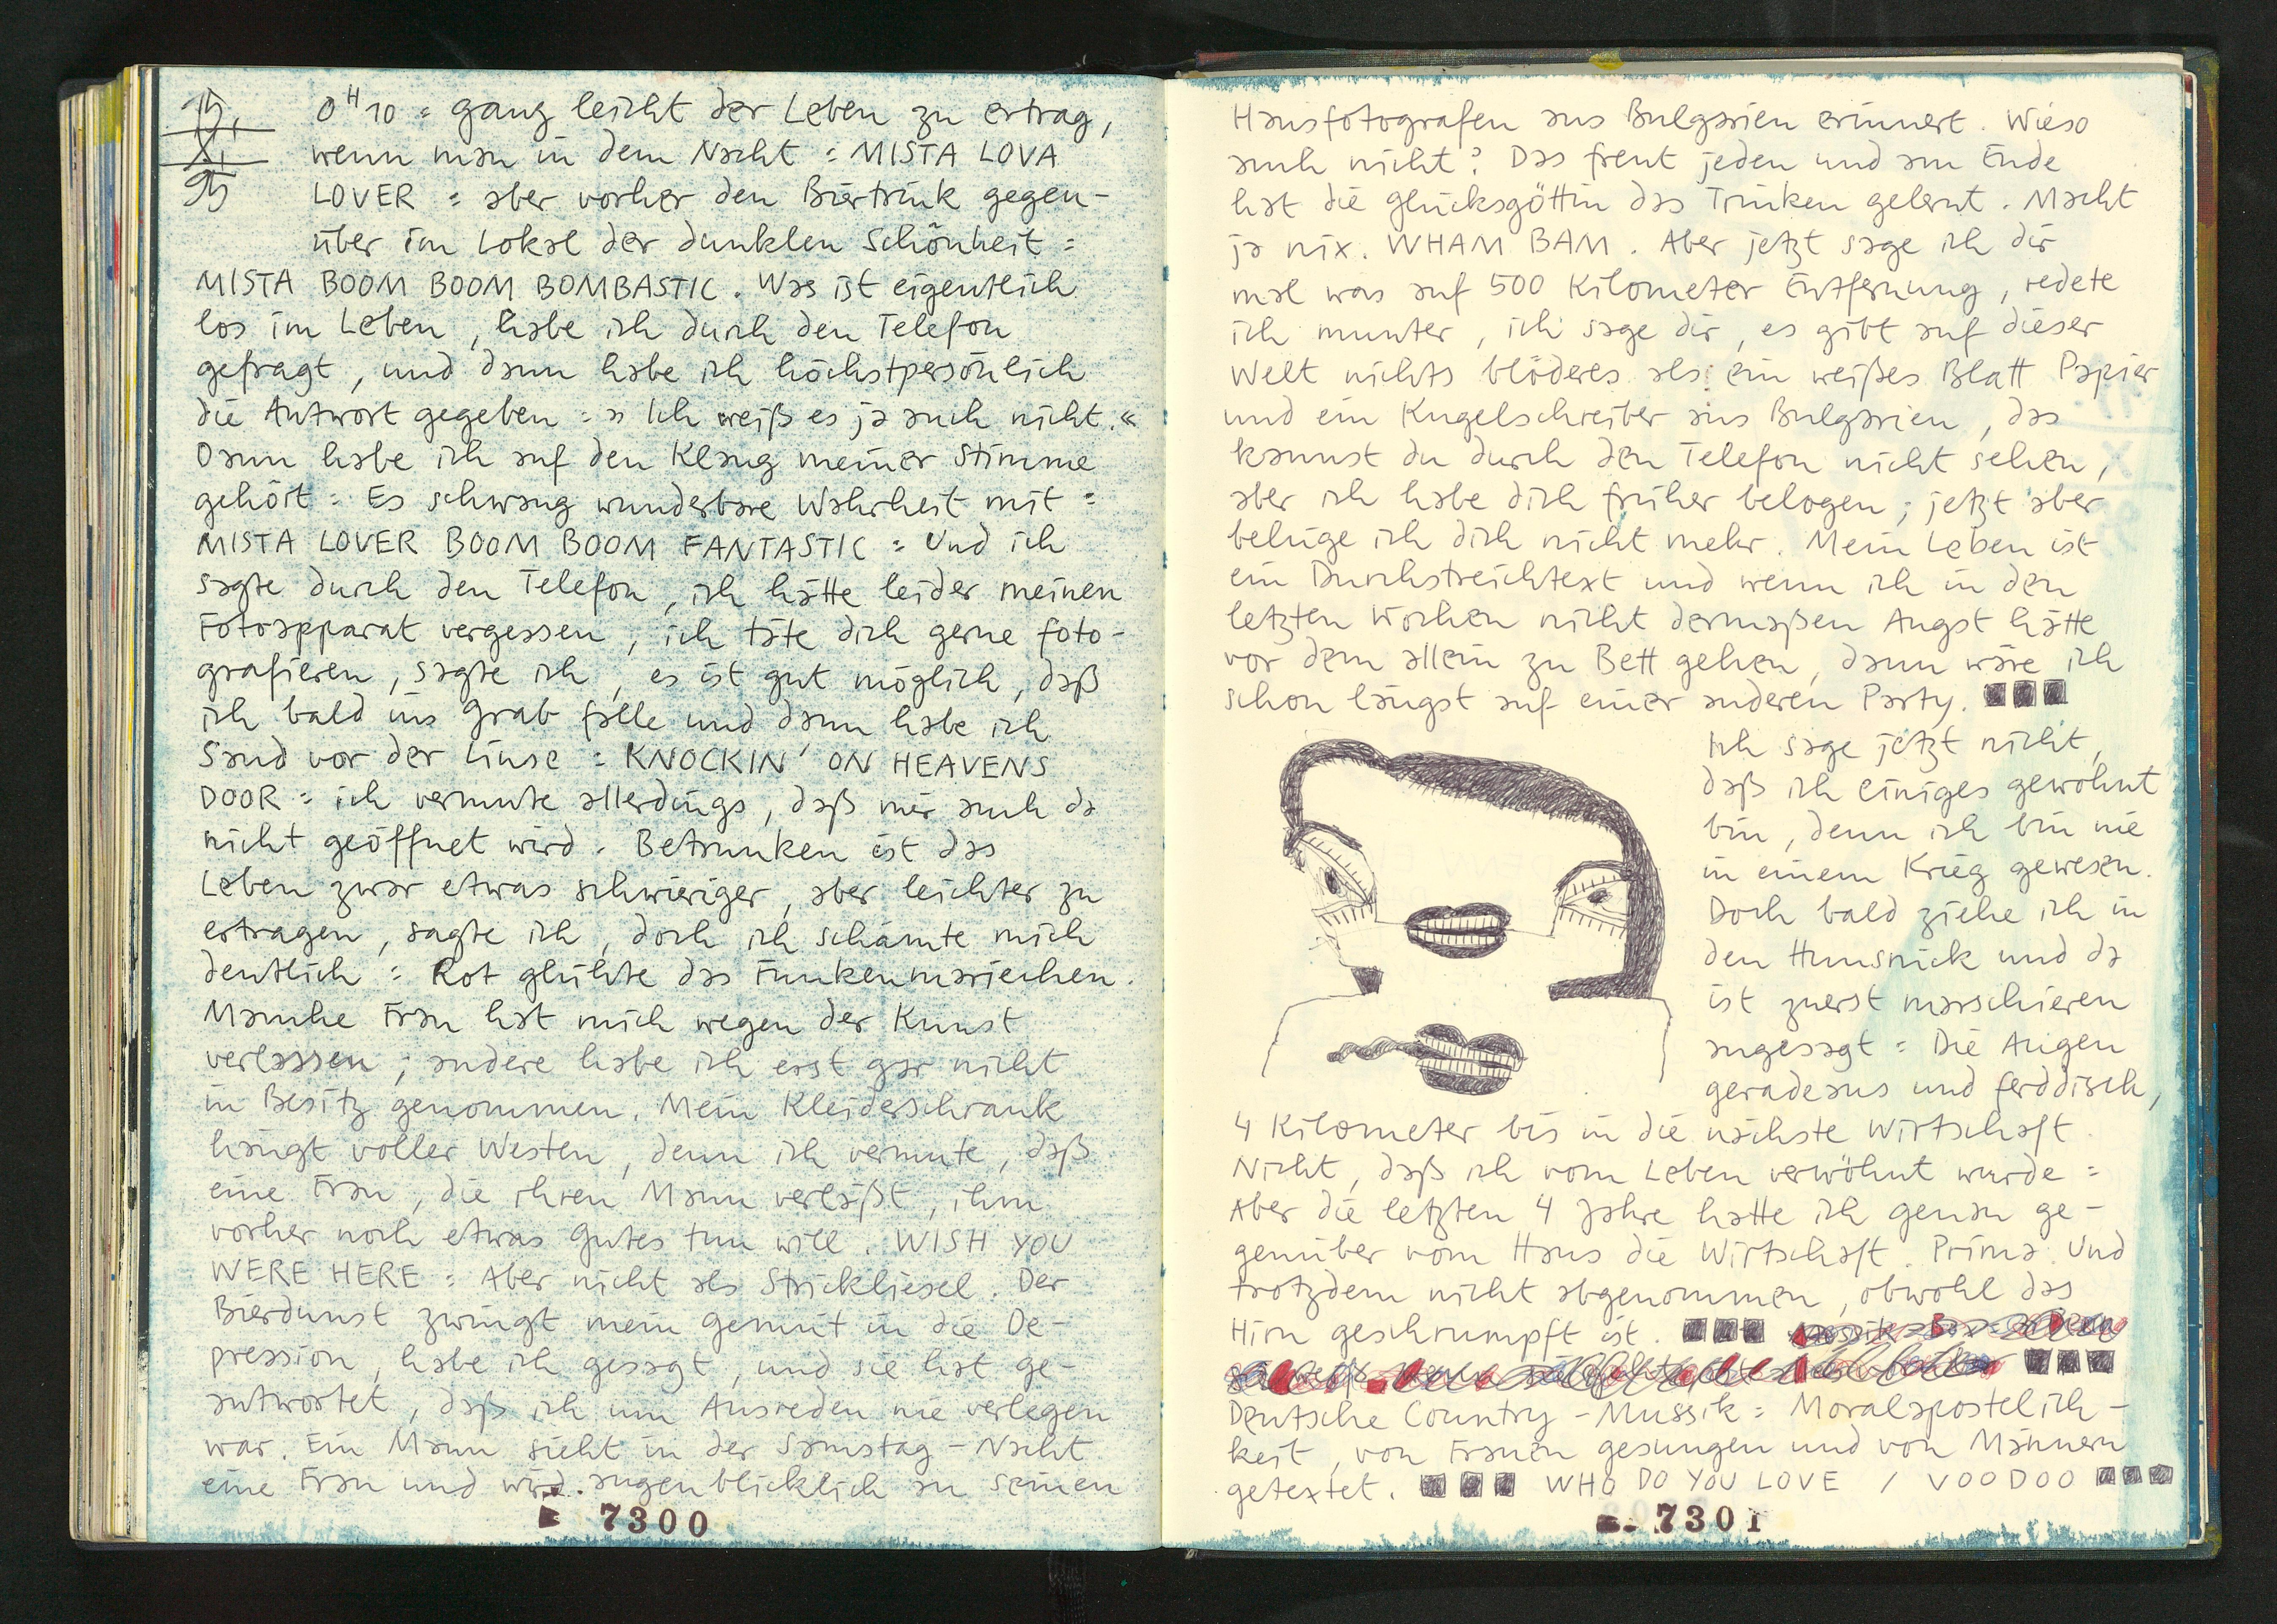 15.
X.
95
0 H 10 = ganz leicht der Leben zu ertrag,
wenn man in dem Nacht = MISTA LOVA
LOVER = aber vorher den Biertrink gegen-
über im Lokal der dunklen Schönheit =
MISTA BOOM BOOM BOMBASTIC. Was ist eigentlich
los im Leben, habe ich durch den Telefon
gefragt, und dann habe ich höchstpersönlich
die Antwort gegeben = » Ich weiß es ja auch nicht.«
Dann habe ich auf den Klang meiner Stimme
gehört = Es schwang wunderbare Wahrheit mit =
MISTA LOVER BOOM BOOM FANTASTIC = Und ich
sagte durch den Telefon, ich hätte leider meinen
Fotoapparat vergessen, ich täte dich gerne foto-
grafieren, sagte ich, es ist gut möglich, daß
ich bald ins Grab falle und dann habe ich
Sand vor der Linse = KNOCKIN' ON HEAVENS
DOOR = ich vermute allerdings, daß mir auch da
nicht geöffnet wird. Betrunken ist das
Leben zwar etwas schwieriger, aber leichter zu
ertragen, sagte ich, doch ich schämte mich
deutlich = Rot glühte das Funkenmariechen.
Manche Frau hat mich wegen der Kunst
verlassen; andere habe ich erst gar nicht
in Besitz genommen. Mein Kleiderschrank
hängt voller Westen, denn ich vermute, daß
eine Frau, die ihren Mann verläßt, ihm
vorher noch etwas Gutes tun will. WISH YOU
WERE HERE = Aber nicht als Strickliesel. Der
Bierdunst zwingt mein Gemüt in die De-
pression, habe ich gesagt, und sie hat ge-
antwortet, daß ich um Ausreden nie verlegen
war. Ein Mann sieht in der Samstag-Nacht
eine Frau und wird augenblicklich an seinen
7300
Hausfotografen aus Bulgarien erinnert. Wieso
auch nicht? Das freut jeden und am Ende
hat die Glücksgöttin das Trinken gelernt. Macht
ja nix. WHAM BAM. Aber jetzt sage ich dir
mal was auf 500 Kilometer Entfernung, redete
ich munter, ich sage dir, es gibt auf dieser
Welt nichts blöderes als ein weißes Blatt Papier
und ein Kugelschreiber aus Bulgarien, das
kannst du durch den Telefon nicht sehen,
aber ich habe dich früher belogen; jetzt aber
belüge ich dich nicht mehr. Mein Leben ist
ein Durchstreichtext und wenn ich in den
letzten Wochen nicht dermaßen Angst hätte
vor dem allein zu Bett gehen, dann wäre ich
schon längst auf einer anderen Party. ■■■
Ich sage jetzt nicht,
daß ich einiges gewohnt
bin, denn ich bin nie
in einem Krieg gewesen.
Doch bald ziehe ich in
den Hunsrück und da
ist zuerst marschieren
angesagt = Die Augen
geradeaus und ferddisch,
4 Kilometer bis in die nächste Wirtschaft.
Nicht, daß ich vom Leben verwöhnt wurde =
Aber die letzten 4 Jahre hatte ich genau ge-
genüber vom Haus die Wirtschaft. Prima. Und
trotzdem nicht abgenommen, obwohl das
Hirn geschrumpft ist. ■■■
■■■
Deutsche Country-Mussik = Moralapostelich-
keit, von Frauen gesungen und von Männern
getextet. ■■■ WHO DO YOU LOVE / VOODOO ■■■
7301